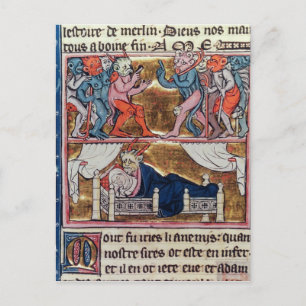 lestoire de merlin. Dieus nos mai
tous a boine fin. A M E
Mout fu iries li anemis. quan
nostre sires ot este en infer
et il en ot iete eue et adam